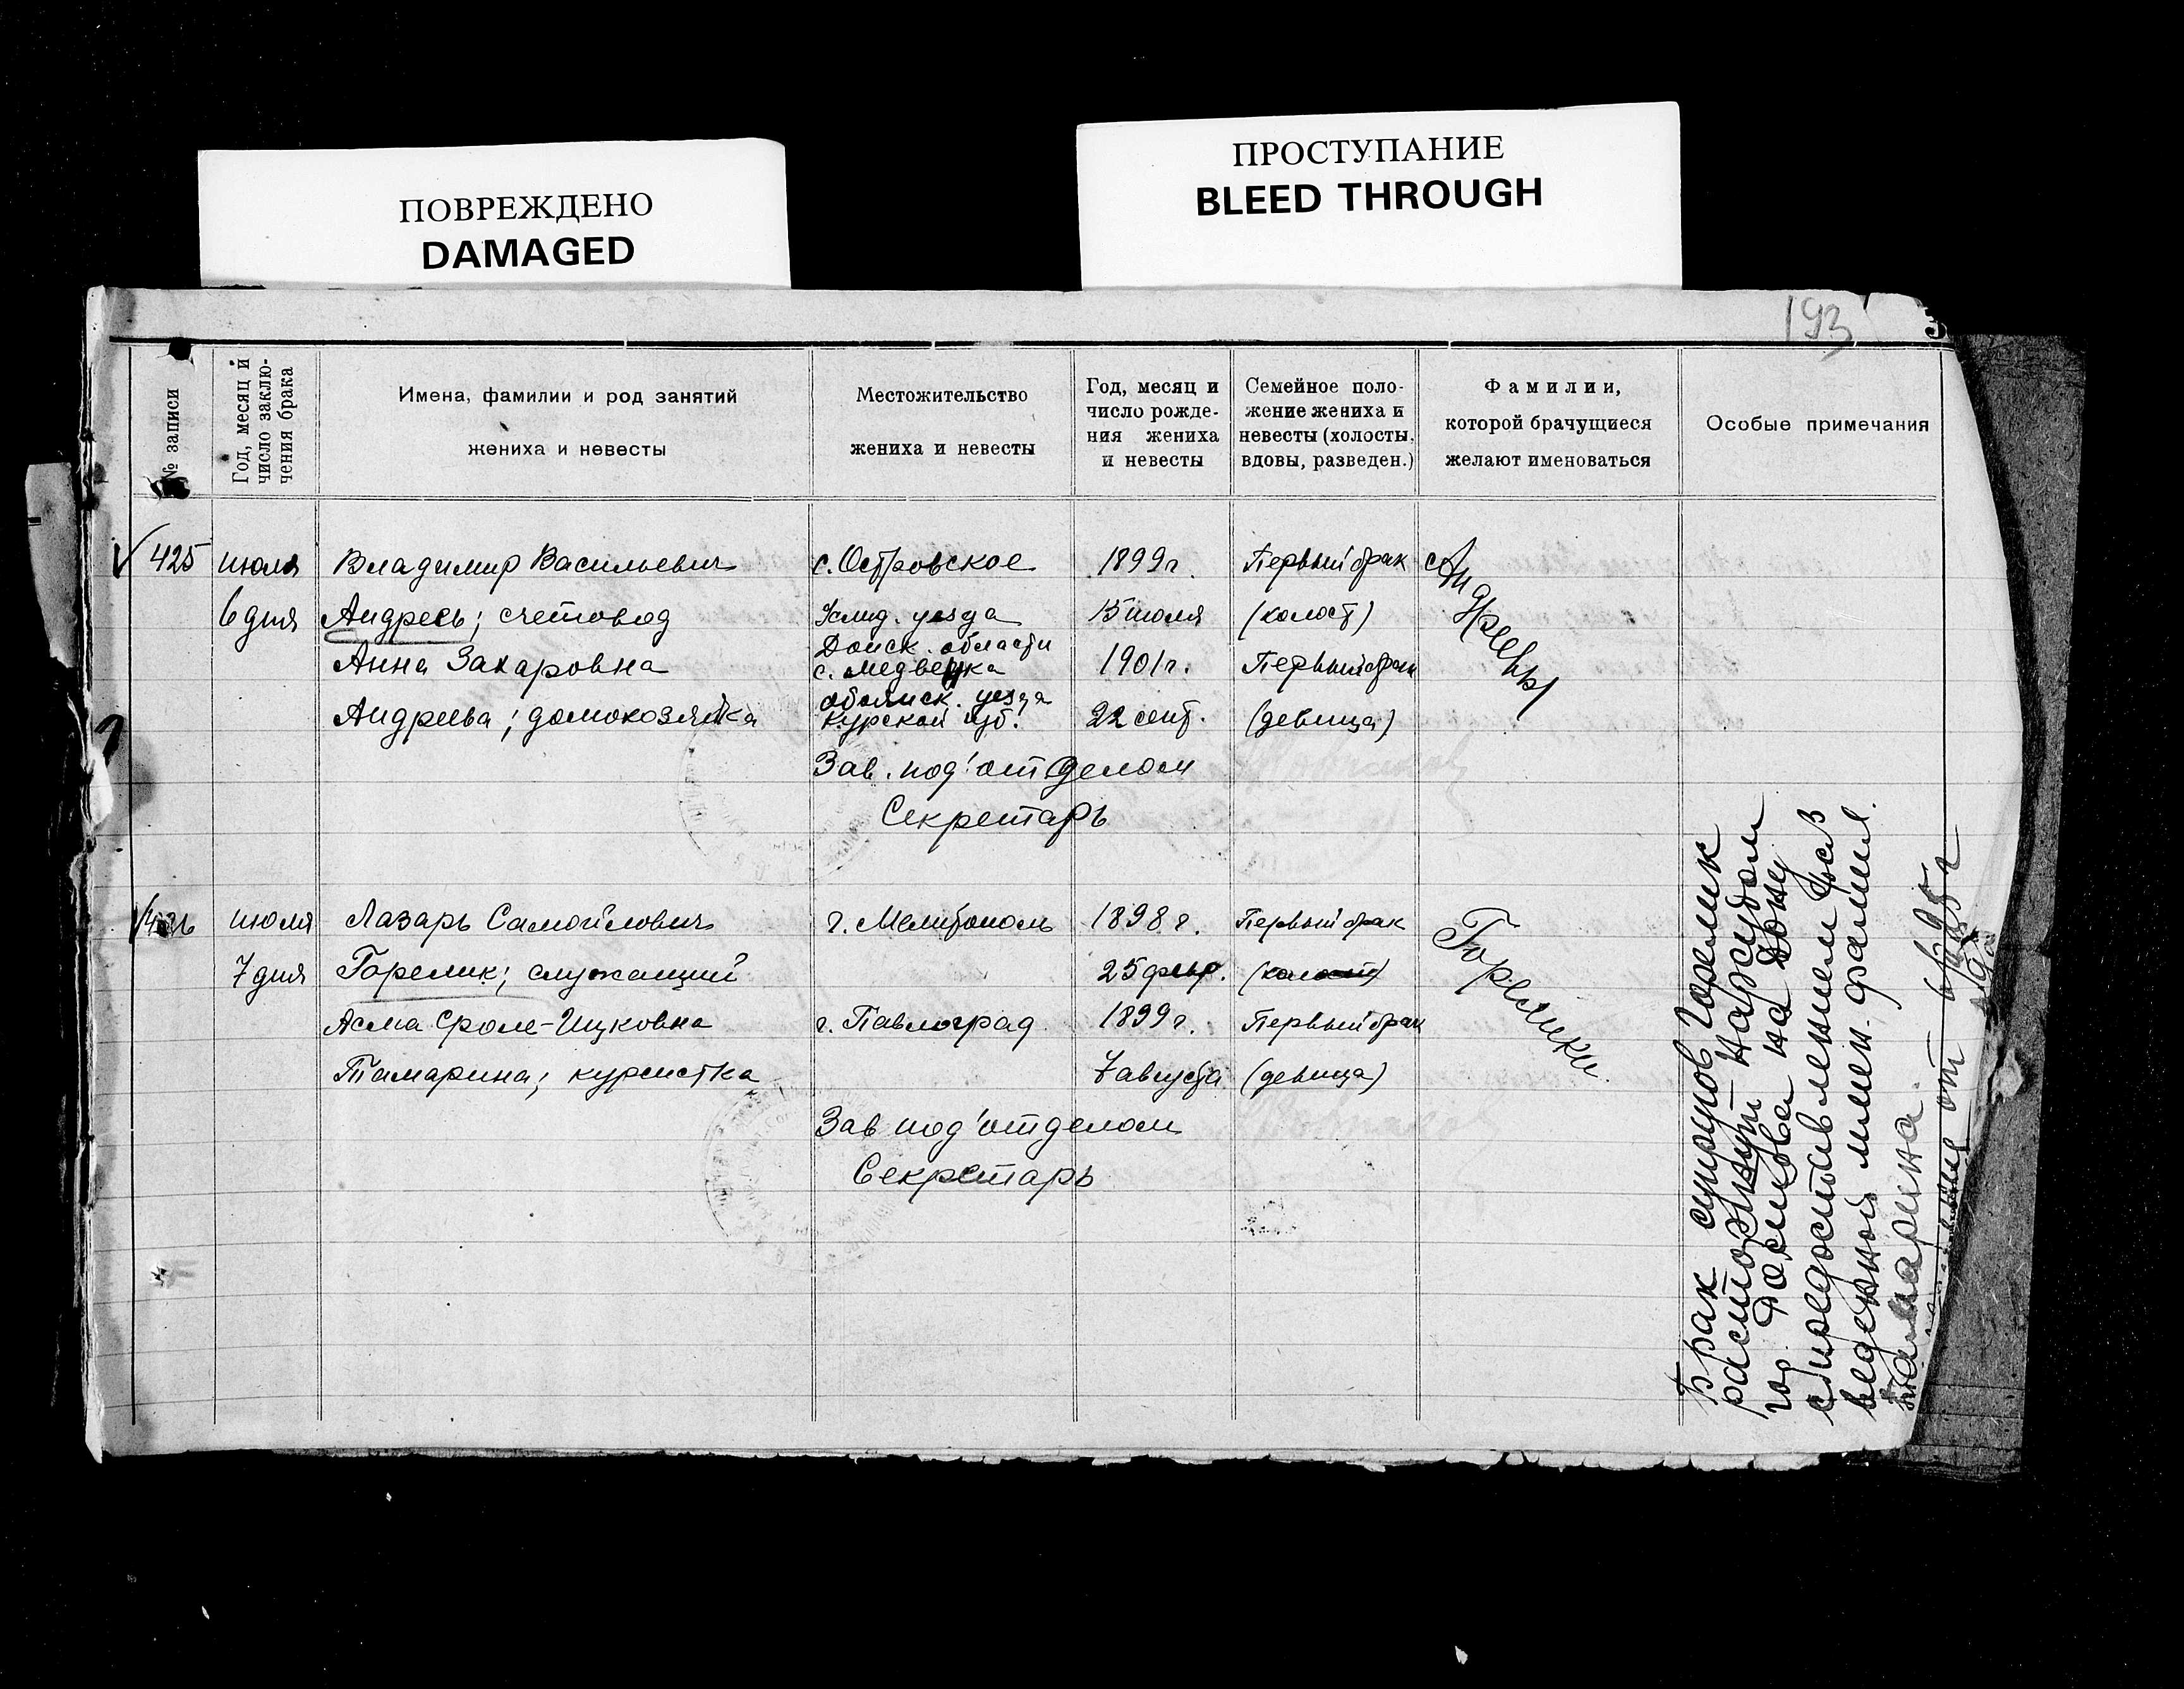 ПОВРЕЖДЕНО
DAMAGED
ПРОСТУПАНИЕ
BLEED THROUGH
193
№ записи
Год, месяц и
число заклю-
чения брака
Имена, фамилии и род занятий
жениха и невесты
Местожительство
жениха и невесты
Год, месяц и
число рожде-
ния жениха
и невесты
Семейное поло-
жение жениха и
невесты (холосты,
вдовы, разведен.)
Фамилии,
которой брачущиеся
желают именоваться
Особые примечания
425 июля Владимир Васильевич с. Островское 1899 г. Первый брак
6 дня Андреев; счетовод уезда 15 июля (холост)
Донск. области
Анна Захаровна с. Медвенка 1901 г. Первый брак
обоянск. уезда
Андреева; домохозяйка Курской губ. 22 сент. (девица)
Андреевы
Зав. под'отделом
Секретарь
426 июля Лазарь Самойлович г. Мелитополь 1898 г. Первый брак
7 дня Горелик; служащий 25 февр. (холост)
Сроле-Ицковна г. Павлоград 1899 г. Первый брак
Тамарина; курсистка 7 августа (девица)
Горелики.
Зав под'отделом
Секретарь
Брак супругов Горелик
расторгнут Нарсудом
гор. Ростова на Дону
с предоставлением
веденной имен. фамил.
Тамарина.
от